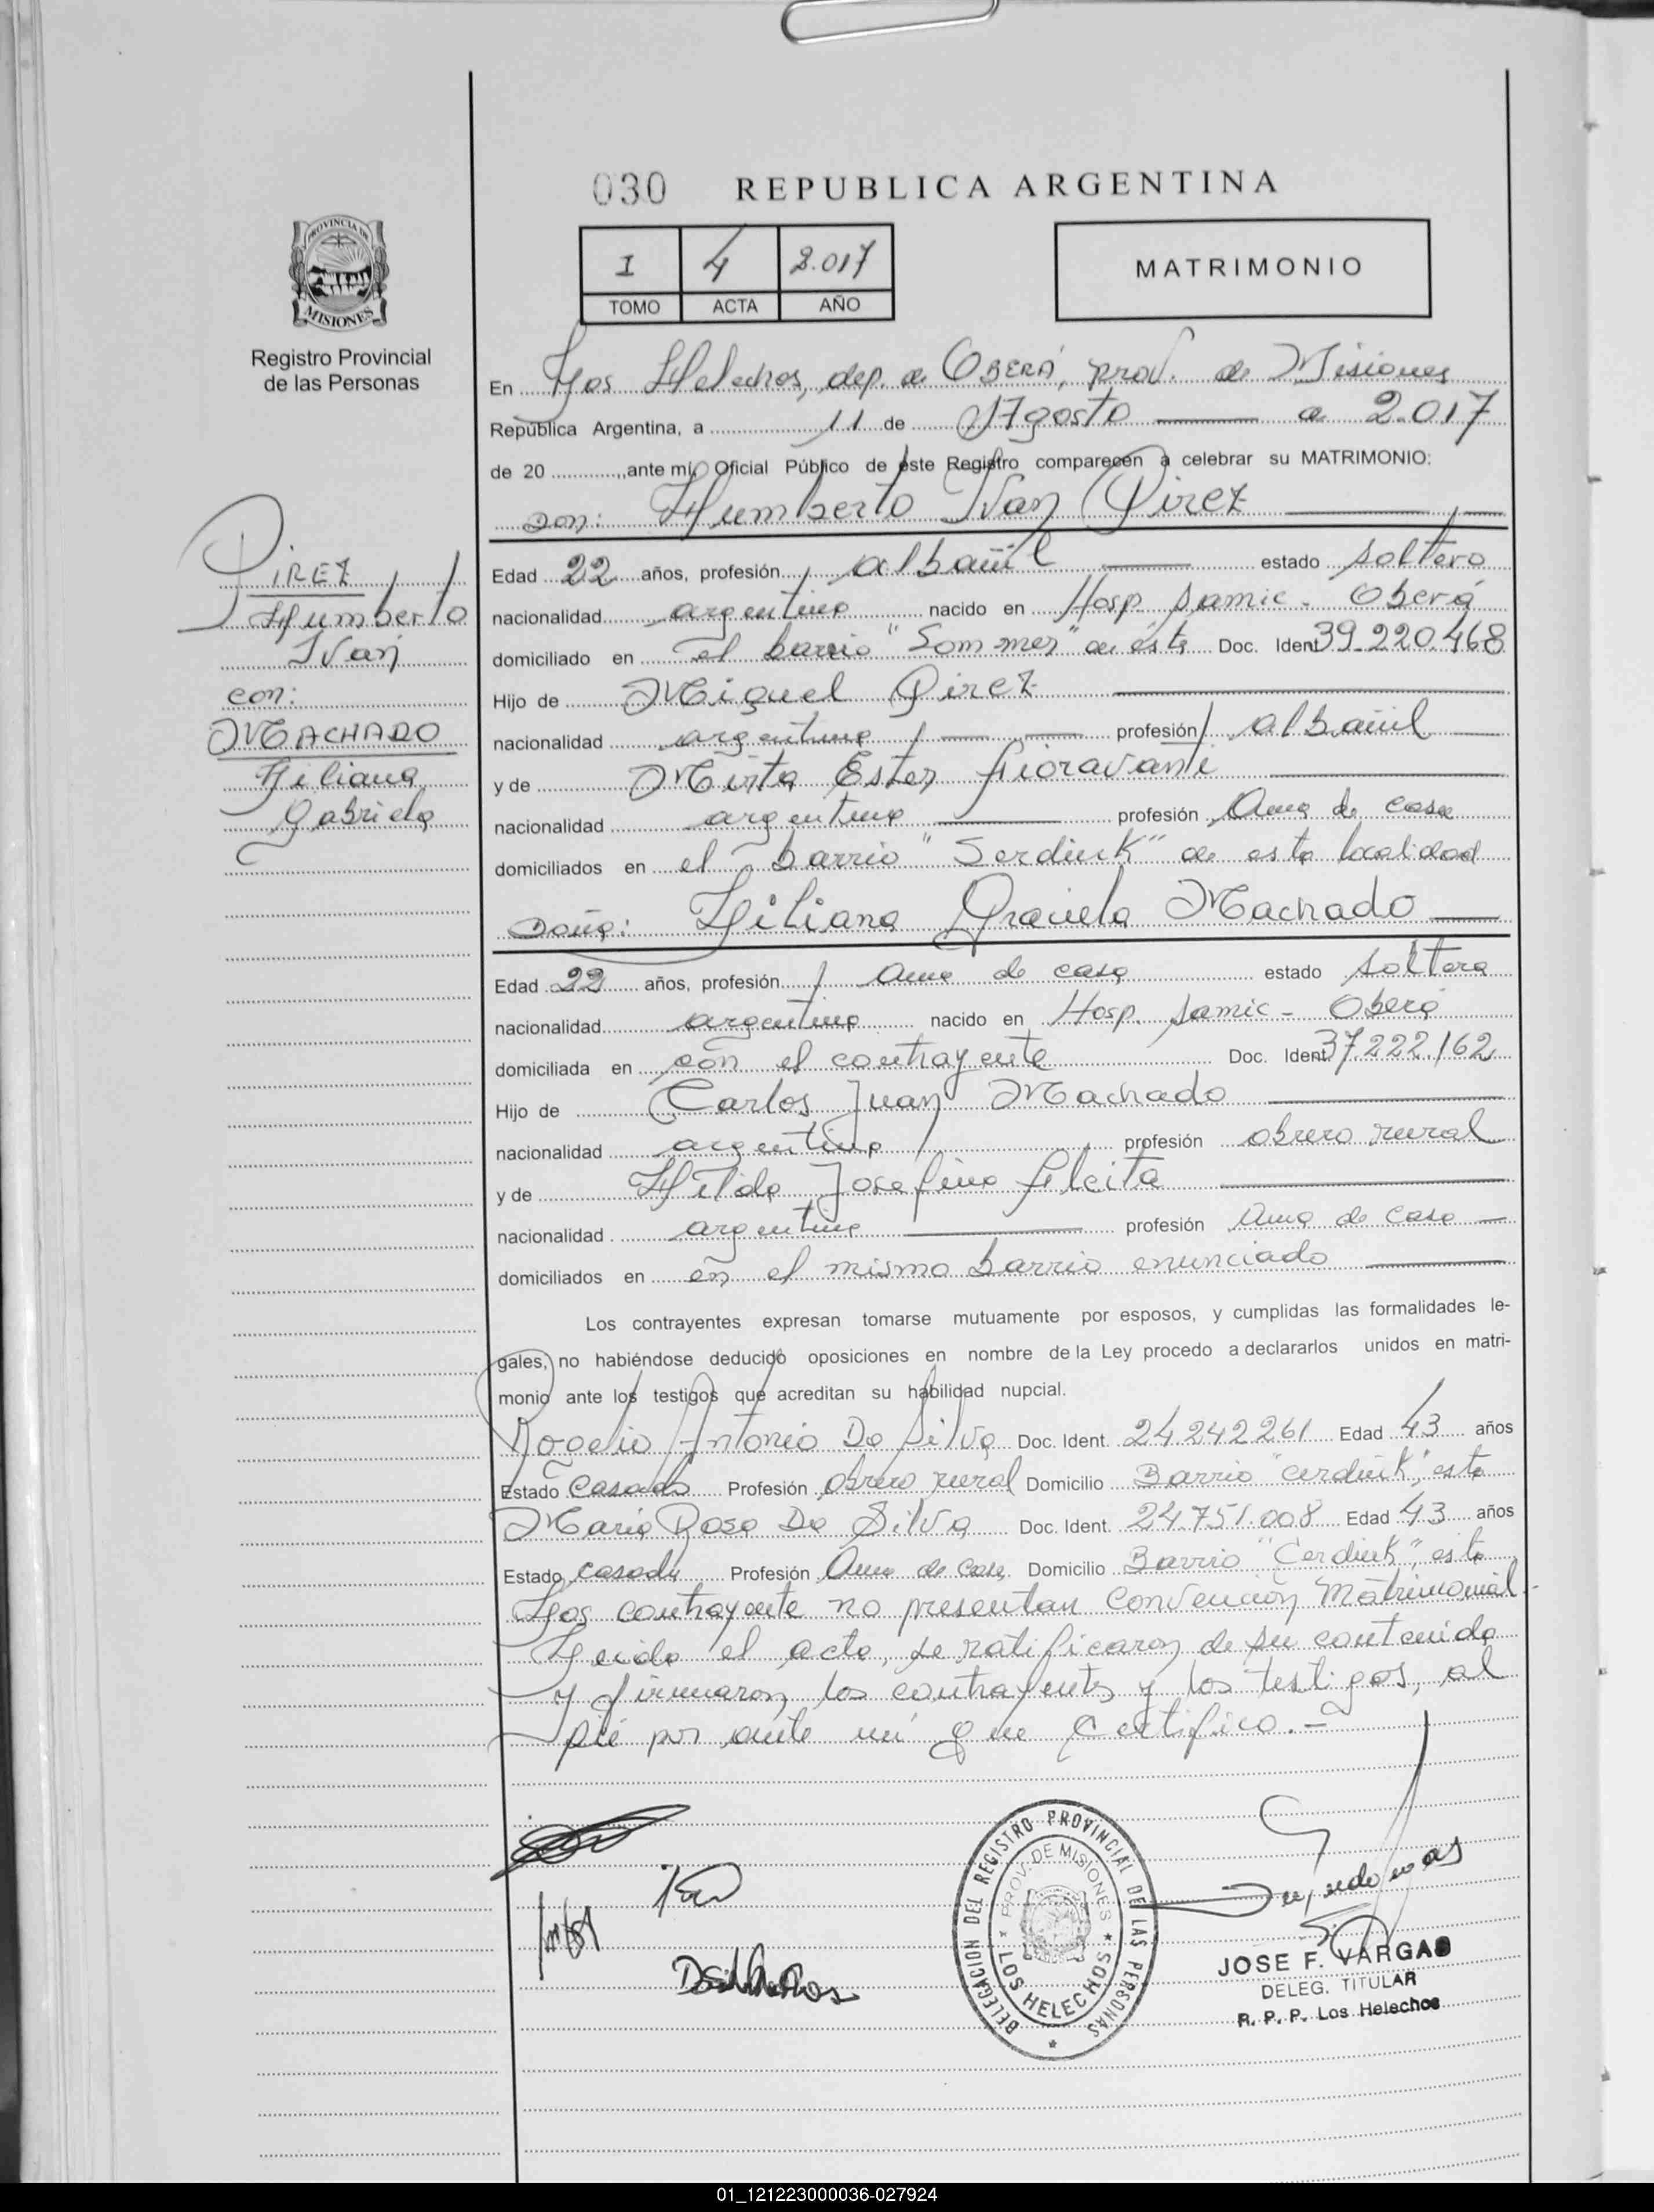 030 REPUBLICA ARGENTINA
I 4 2.017
TOMO ACTA AÑO
MATRIMONIO
PROVINCIA DE
MISIONES
Registro Provincial
de las Personas
Pirez
Humberto
Iván
con:
MACHADO
Liliana
Gabriela
En Los Helechos, dep. de OBERÁ, prov. de Misiones
República Argentina, a 11 de Agosto a 2.017
de 20 ,ante mí, Oficial Público de este Registro comparecen a celebrar su MATRIMONIO:
Don: Humberto Ivan Pirez
Edad 22 años, profesión albañil estado soltero
nacionalidad argentino nacido en Hosp. Samic - Oberá
domiciliado en el barrio "Sommer" de ésta Doc. Ident 39.220.468
Hijo de Miguel Pirez
nacionalidad argentino profesión albañil
y de Mirta Ester Fioravanti
nacionalidad argentina profesión Ama de casa
domiciliados en el barrio "Serdiuk" de esta localidad
Doña: Liliana Graciela Machado
Edad 22 años, profesión Ama de casa estado soltera
nacionalidad argentina nacido en Hosp. Samic - Oberá
domiciliada en con el contrayente Doc. Ident 37.222.162
Hijo de Carlos Juan Machado
nacionalidad argentino profesión obrero rural
y de Hilda Josefina
nacionalidad argentina profesión Ama de casa
domiciliados en en el mismo barrio enunciado
Los contrayentes expresan tomarse mutuamente por esposos, y cumplidas las formalidades le-
gales, no habiéndose deducido oposiciones en nombre de la Ley procedo a declararlos unidos en matri-
monio ante los testigos que acreditan su habilidad nupcial.
Rogelio Antonio Da Silva Doc. Ident. 24.242.261 Edad 43 años
Estado Casado Profesión Obrero rural Domicilio Barrio "Cerdiuk", esta
Maria Rosa Da Silva Doc. Ident. 24.751.008 Edad 43 años
Estado casada Profesión Ama de casa Domicilio Barrio "Cerdiuk", esta
Los contrayente no presentan Convención Matrimonial.
Leida el acta, se ratificaron de su contenido
y firmaron, los contrayentes y los testigos, al
pié por ante mí que Certifico.-
DELEGACION DEL REGISTRO PROVINCIAL DE LAS PERSONAS
PROV. DE MISIONES
LOS HELECHOS
JOSE F. VARGAS
DELEG. TITULAR
R. P. P. Los Helechos
01_121223000036-027924